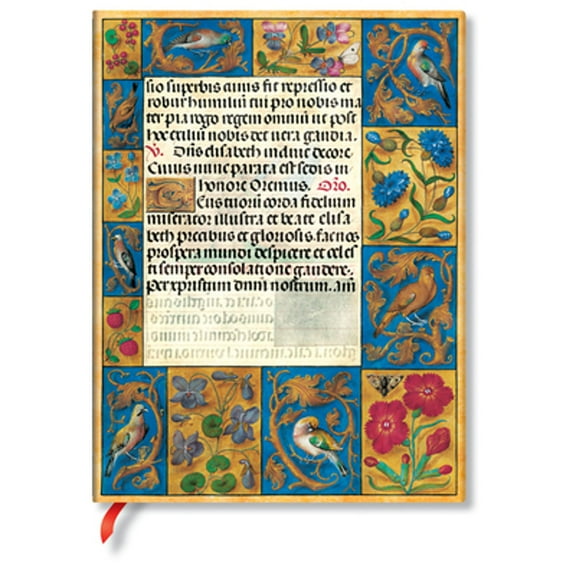 sio superbis cuius fit repressio et
robur humiliū tui pro nobis ma
ter pia rogo regem omniū ut post
hoc exiliū nobis det uera gaudia.
V. Dn̄s elisabeth induit decore
Cuius nunc parata est sedis in
honore Oremus. Oŕo.
Eus tuorū corda fidelium
miserator illustra et beate elisa
beth precibus et gloriosis. fac nos
prospera mundi despicere et celes
ti semper consolatione gaudere.
Per xpristum dnm̄ nostrum. Am̄